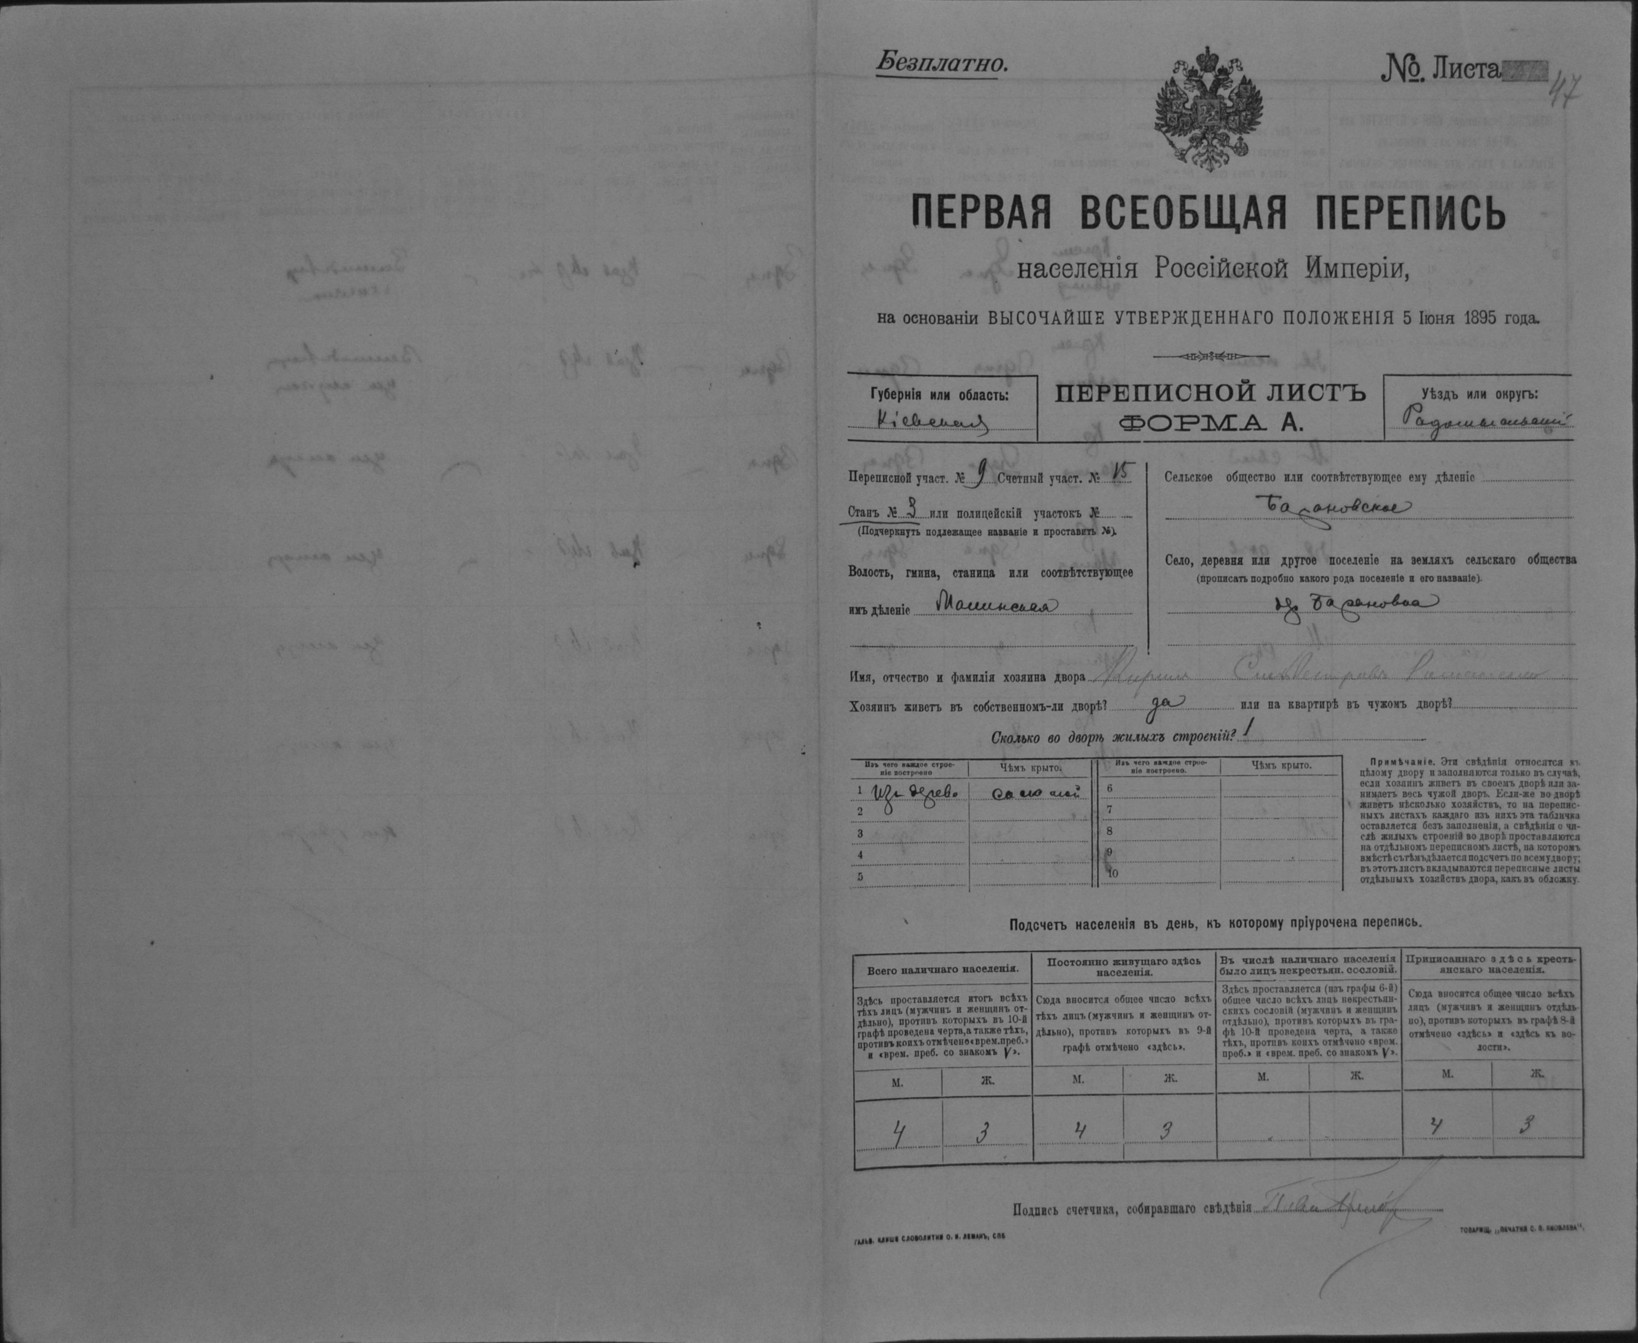 Безплатно.
№ Листа
47
ПЕРВАЯ ВСЕОБЩАЯ ПЕРЕПИСЬ
населенія Россійской Имперіи,
на основаніи ВЫСОЧАЙШЕ УТВЕРЖДЕННАГО ПОЛОЖЕНІЯ 5 Іюня 1895 года.
Губернія или область:
Кіевская
ПЕРЕПИСНОЙ ЛИСТЪ
ФОРМА А.
Уѣздъ или округъ:
Радомысльскій
Переписной участ. № 9 Счетный участ. № 15
Станъ № 3 или полицейскій участокъ №
(Подчеркнуть подлежащее названіе и проставить №).
Волость, гмина, станица или соотвѣтствующее
имъ дѣленіе Малинская
Сельское общество или соотвѣтствующее ему дѣленіе
Барановское
Село, деревня или другое поселеніе на земляхъ сельскаго общества
(прописать подробно какого рода поселеніе и его названіе).
др Барановка
Имя, отчество и фамилія хозяина двора
Хозяинъ живетъ въ собственномъ-ли дворѣ? да или на квартирѣ въ чужомъ дворѣ?
Сколько во дворѣ жилыхъ строеній? 1
Изъ чего каждое строе-
ніе построено
Чѣмъ крыто.
Изъ чего каждое строе-
ніе построено.
Чѣмъ крыто.
1 Изъ дерева соломой
2
3
4
5
6
7
8
9
10
Примѣчаніе. Эти свѣдѣнія относятся къ
цѣлому двору и заполняются только въ случаѣ,
если хозяинъ живетъ въ своемъ дворѣ или за-
нимаетъ весь чужой дворъ. Если-же во дворѣ
живетъ нѣсколько хозяйствъ, то на перепис-
ныхъ листахъ каждаго изъ нихъ эта табличка
оставляется безъ заполненія, а свѣдѣнія о чи-
слѣ жилыхъ строеній во дворѣ проставляются
на отдѣльномъ переписномъ листѣ, на которомъ
вмѣстѣ съ тѣмъ дѣлается подсчетъ по всему двору;
въ этотъ листъ вкладываются переписные листы
отдѣльныхъ хозяйствъ двора, какъ въ обложку.
Подсчетъ населенія въ день, къ которому пріурочена перепись.
Всего наличнаго населенія.
Здѣсь проставляется итогъ всѣхъ
тѣхъ лицъ (мужчинъ и женщинъ от-
дѣльно), противъ которыхъ въ 10-й
графѣ проведена черта, а также тѣхъ,
противъ коихъ отмѣчено «врем. преб.»
и «врем. преб. со знакомъ V».
Постоянно живущаго здѣсь
населенія.
Сюда вносится общее число всѣхъ
тѣхъ лицъ (мужчинъ и женщинъ от-
дѣльно), противъ которыхъ въ 9-й
графѣ отмѣчено «здѣсь».
Въ числѣ наличнаго населенія
было лицъ некрестьян. сословій.
Здѣсь проставляется (изъ графы 6-й)
общее число всѣхъ лицъ некрестьян-
скихъ сословій (мужчинъ и женщинъ
отдѣльно), противъ которыхъ въ гра-
фѣ 10-й проведена черта, а также
тѣхъ, противъ коихъ отмѣчено «врем.
преб.» и «врем. преб. со знакомъ V».
Приписаннаго здѣсь кресть-
янскаго населенія.
Сюда вносится общее число всѣхъ
лицъ (мужчинъ и женщинъ отдѣль-
но), противъ которыхъ въ графѣ 8-й
отмѣчено «здѣсь» и «здѣсь въ во-
лости».
М. Ж. М. Ж. М. Ж. М. Ж.
4 3 4 3 4 3
Подпись счетчика, собиравшаго свѣдѣнія
ГАЛЬВ. КЛИШЕ СЛОВОЛИТНИ О. И. ЛЕМАНЪ, СПБ.
ТОВАРИЩ. „ПЕЧАТНЯ С. П. ЯКОВЛЕВА".